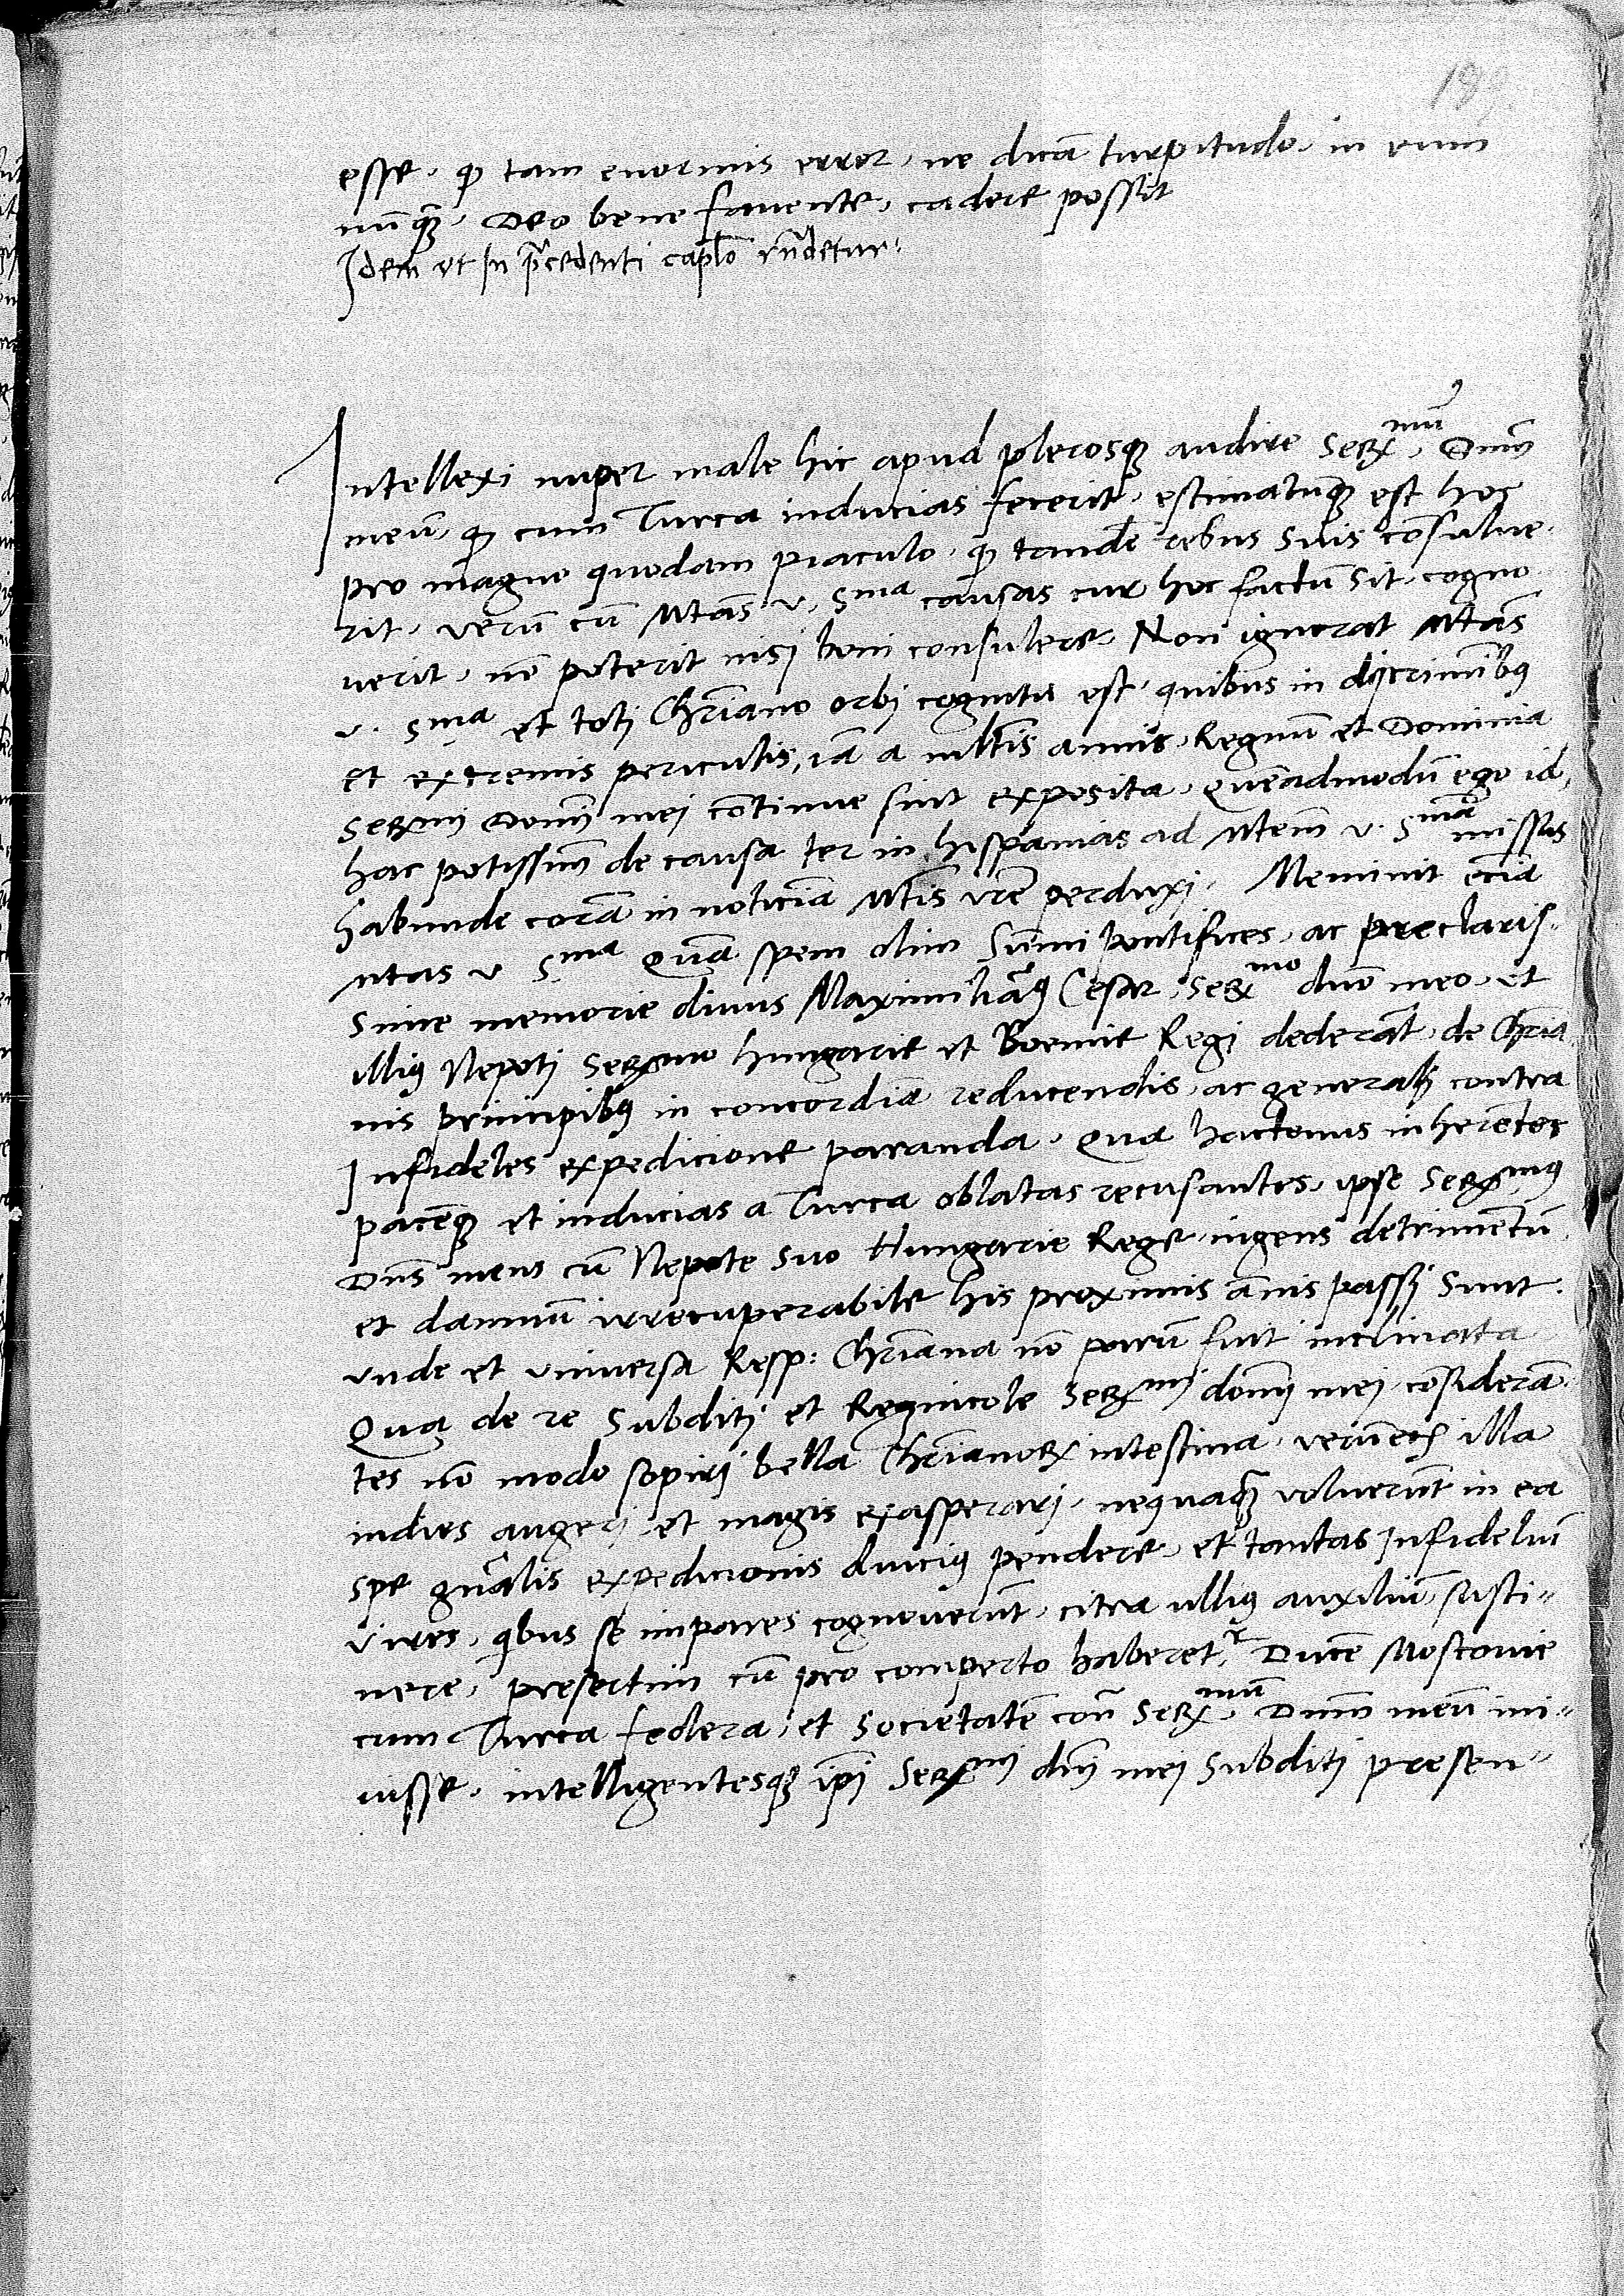 199
esse, ꝙ tam enormis error, ne dicā turpitudo, in eum
nūqꝫ, Deo bene favente, cadere possit
Idem ut In p̄cedenti cap̄lo rn̄detur.
Intellexi nuper male hic apud plerosqꝫ audire Serᵐᵘ̄ Dnm̄
meū, ꝙ cum Turca inducias fecerit, estimatūqꝫ est hoc
pro magno quodam piaculo, ꝙ tandē rebus suis cōsulue-
rit, verū cū Mtas̄ v. Sᵐᵃ causas cur hoc factū sit, cogno
verit, nō poterit nisi boni consulere. Non ignorat Mtas̄
v. Sᵐᵃ et toti Chr̄iano orbi cognitū est, quibus in discriminibꝰ
et extremis periculis, iā a multis annis, Regnū et Dominia
Serᵐⁱ Domī mei cōtinue sint exposita, quēadmodū ego id,
hac potissimū de causa ter in hispanias ad Mtem̄ v. Sᵐᵃ̄ missus
habunde corā in noticiā Mtis̄ vrē perduxi. Meminit eciā
Mtas v Sᵐᵃ quā spem olim Sūmi Pontifices, ac preclaris-
sime memorie divus Maximiliāꝰ Cesar, Serᵐᵒ dn̄o meo, et
illiꝰ Nepoti Serᵐᵒ hungarie et Boemie Regi dederāt, de Chr̄ia
nis principibꝰ in concordiā reducendis, ac generali contra
Infideles expedicione paranda. Qua hactenus inherētes
pacēqꝫ et inducias a Turca oblatas recusantes, ipse Serᵐᵘˢ
Dn̄s meus cū Nepote suo Hungarie Rege, ingens detrimētū
et damnū irrecuperabile his proximis ānis passi sunt.
vnde et vniversa Resp: Chr̄iana nō parū fuit inclinata
Qua de re Subditi et Regnicole Serᵐⁱ domī mei, cōsiderā-
tes nō modo sopiri bella Chr̄ianoꝝ intestina, verūecīā illa
indies augeri et magis exasperari, nequaqꝫ voluerūt in ea
spe gn̄ralis expedicionis diuciꝰ pendere, et tantas Infideliū
vires, qibus se impares cognoverūt, citra ulliꝰ auxiliū, susti-
nere, presertim cū pro comperto haberetʳ, Ducē Moscovie
cum Turca federa, et societatē con̄ Serᵐᵘ̄ Dnm̄ meū ini-
uisse, intelligentesqꝫ ip̄i Serᵐⁱ dn̄i mei subditi presen-